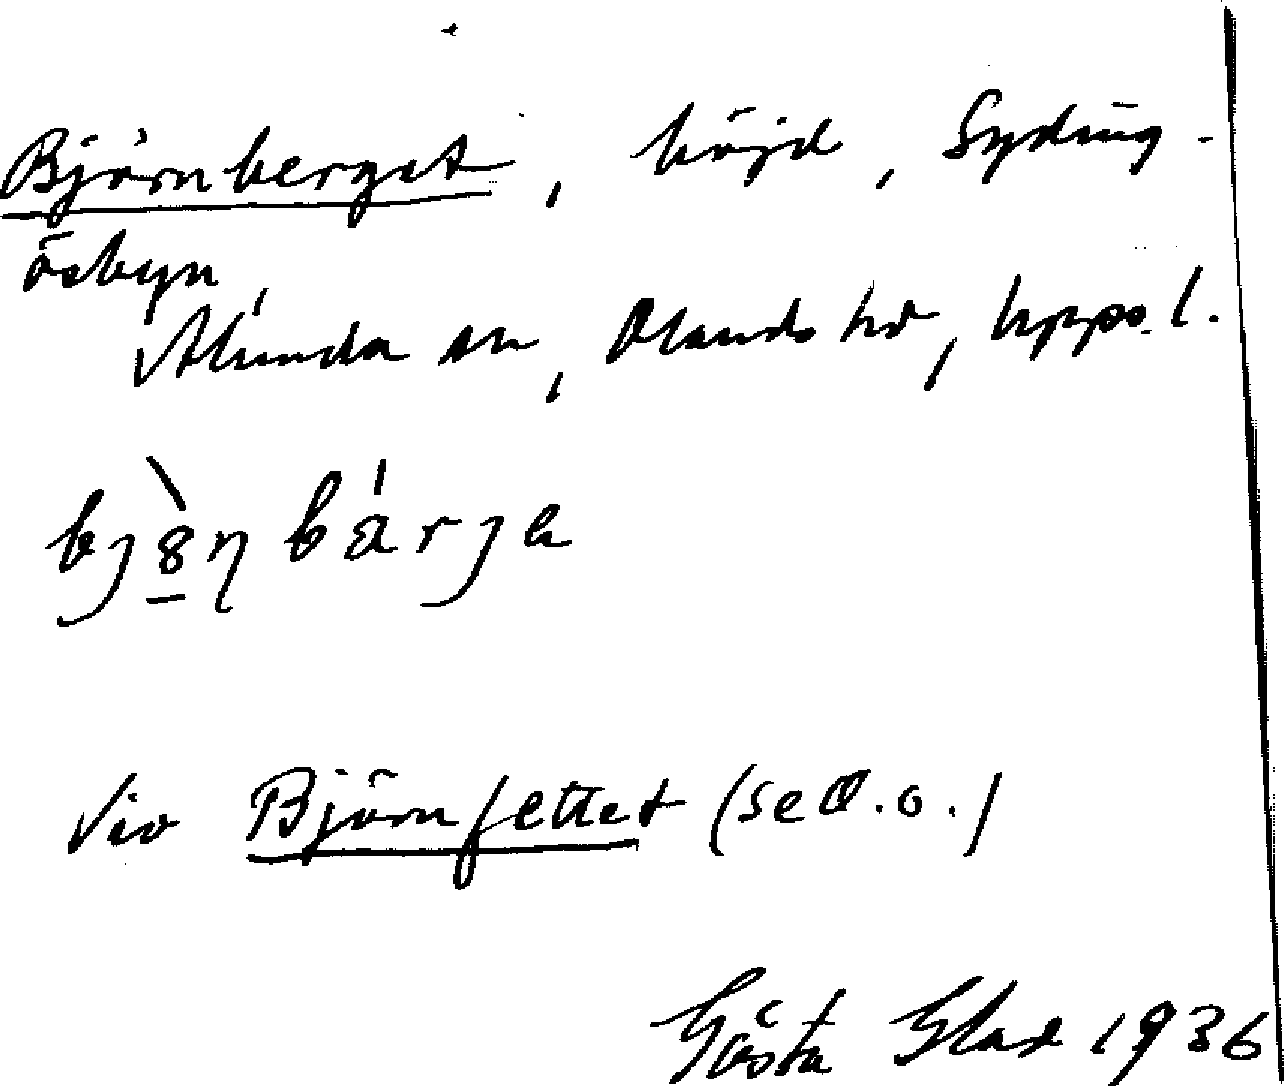 Björnberget, höjd, Syding-
ösbyn,
Alunda sn, Olands hd, Upps. l.
Vid Björnfettet (se d. o.)
Gösta Glad 1936